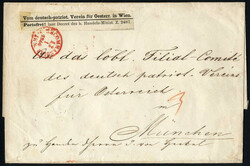 Vom deutsch-patriot. Verein für Oesterr. in Wien.
Portofrei! laut Decret des h. Handels-Minist. Z.
An das löbl. Filial-Comité
des deutsch patriot. Vereins
für Oesterreich
in
München
zu Handen Herrn von